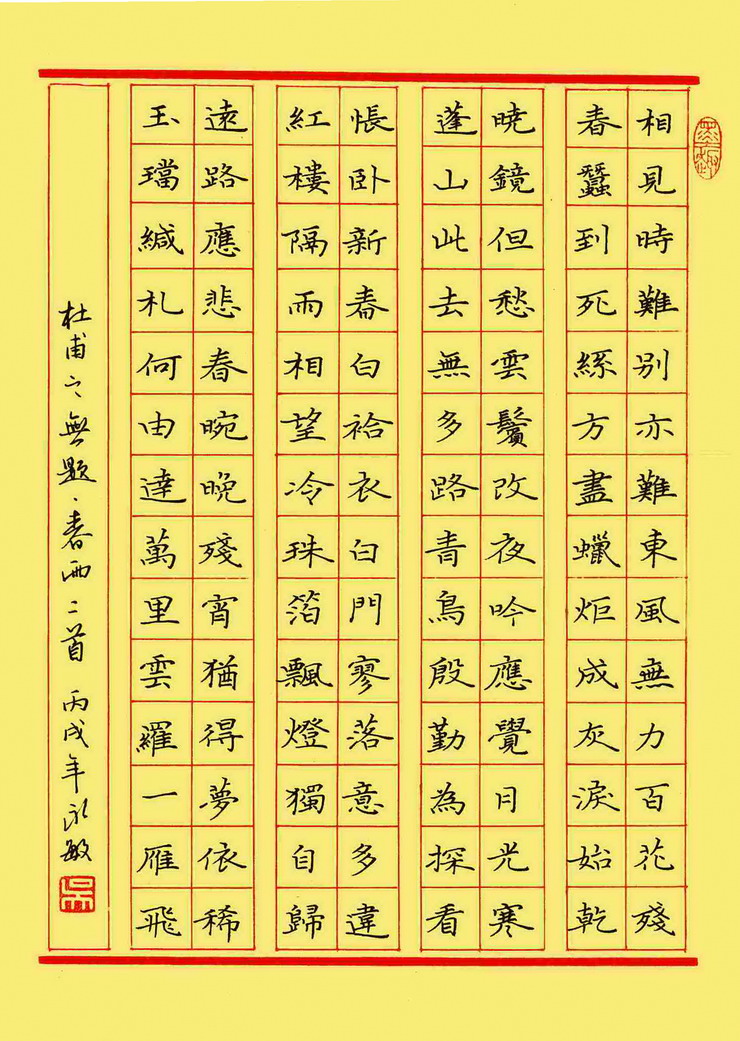 相見時難別亦難東風無力百花殘
春蠶到死絲方盡蠟炬成灰淚始乾
曉鏡但愁雲鬢改夜吟應覺月光寒
蓬山此去無多路青鳥殷勤為探看
悵卧新春白袷衣白門寥落意多違
紅樓隔雨相望冷珠箔飄燈獨自歸
遠路應悲春晼晚殘宵猶得夢依稀
玉璫緘札何由達萬里雲羅一雁飛
杜甫之無題、春雨二首 丙戌年永敏